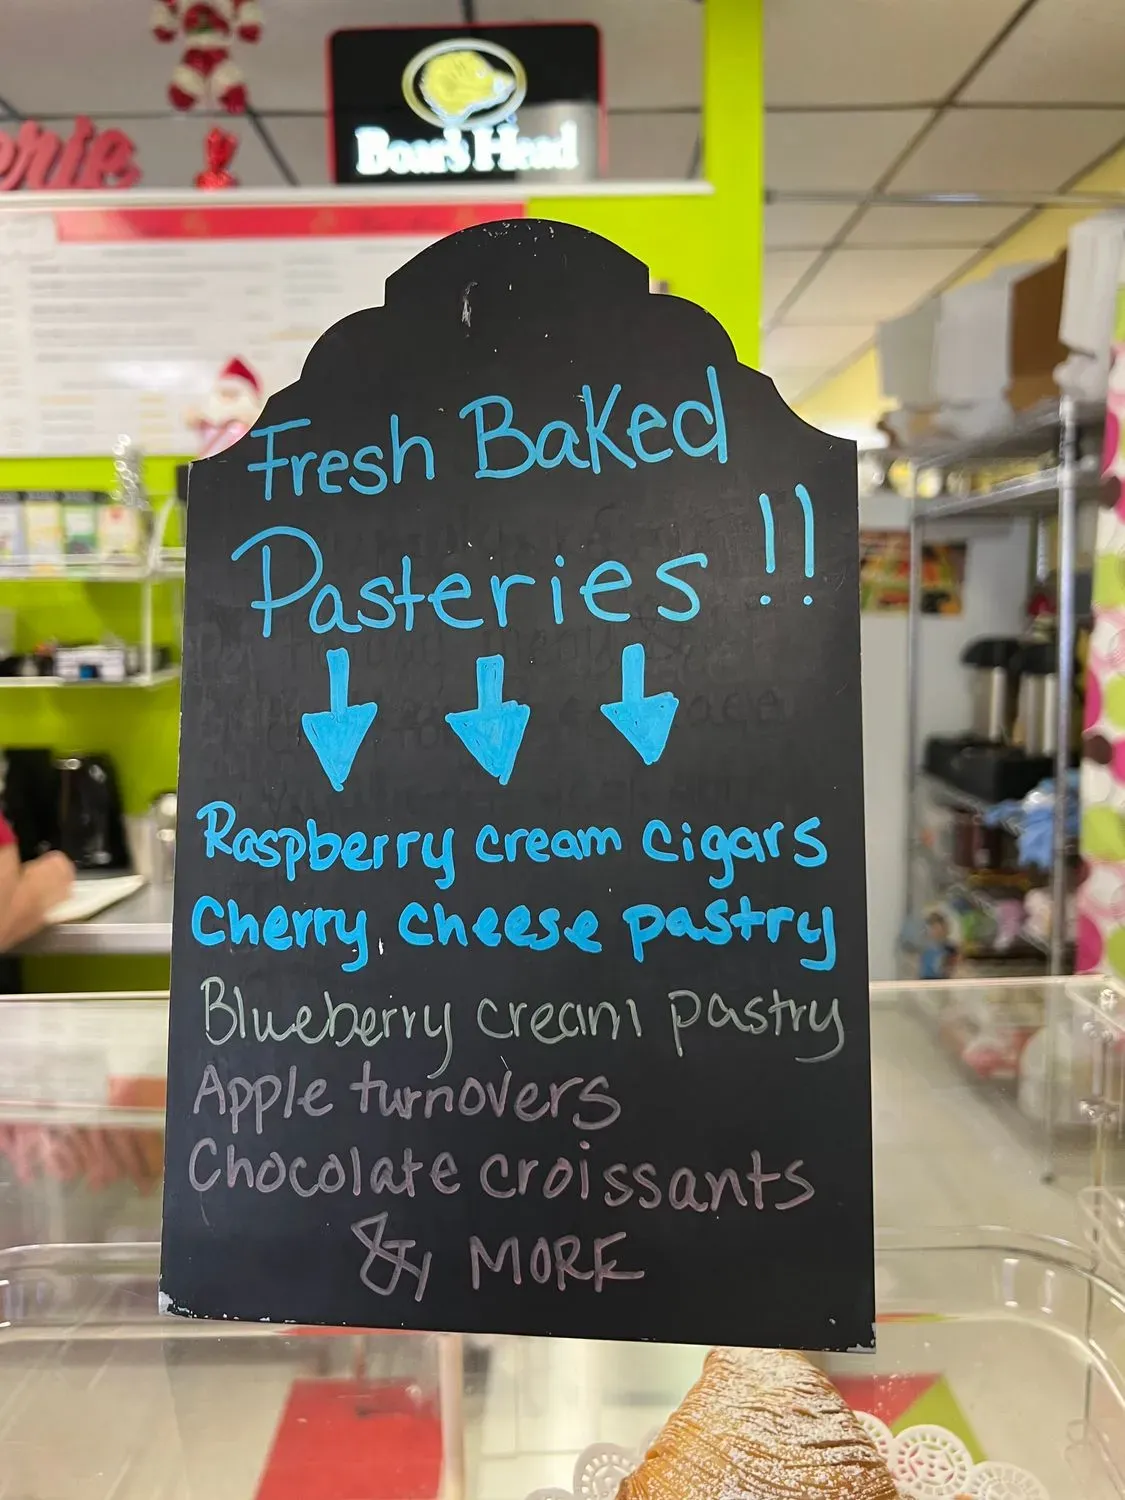 erie
Boar's Head
Fresh Baked
Pasteries !!
Raspberry cream cigars
Cherry cheese pastry
Blueberry cream pastry
Apple turnovers
Chocolate croissants
& MORE